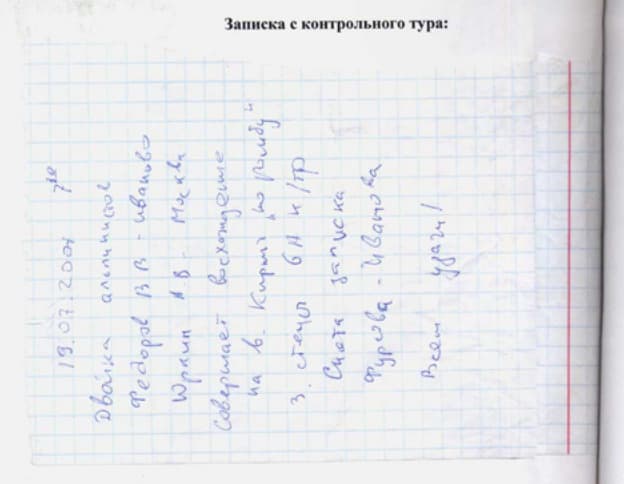 Записка с контрольного тура:
Двойка альпинистов
Федоров В В - Иваново
Юркин А.В. - Москва
совершает восхождение
на в. „по ромбу"
З. стены 6А к/тр
Снята записка
- Иванова
Всем удачи!